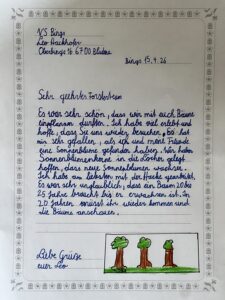 VS Bings
Leo Hackhofer
Oberbings 16 6700 Bludenz
Bings 15.4.26
Sehr geehrtes Forstteam
Es war sehr schön, dass wir mit euch Bäume
einpflanzen durften. Ich habe viel erlebt und
hoffe, dass Sie uns wieder besuchen. Es hat
mir sehr gefallen, als ich und meine Freunde
eine Sonnenblume gefunden haben. Wir haben
Sonnenblumenkerne in die Löcher gelegt
hoffen, dass neue Sonnenblumen wachsen.
Ich habe am liebsten mit der Hacke gearbeitet.
Es war sehr unglaublich, dass ein Baum 20 bis
25 Jahre braucht bis er erwachsen ist. In
20 Jahren müsst ihr wieder kommen und
die Bäume anschauen.
Liebe Grüße
euer Leo